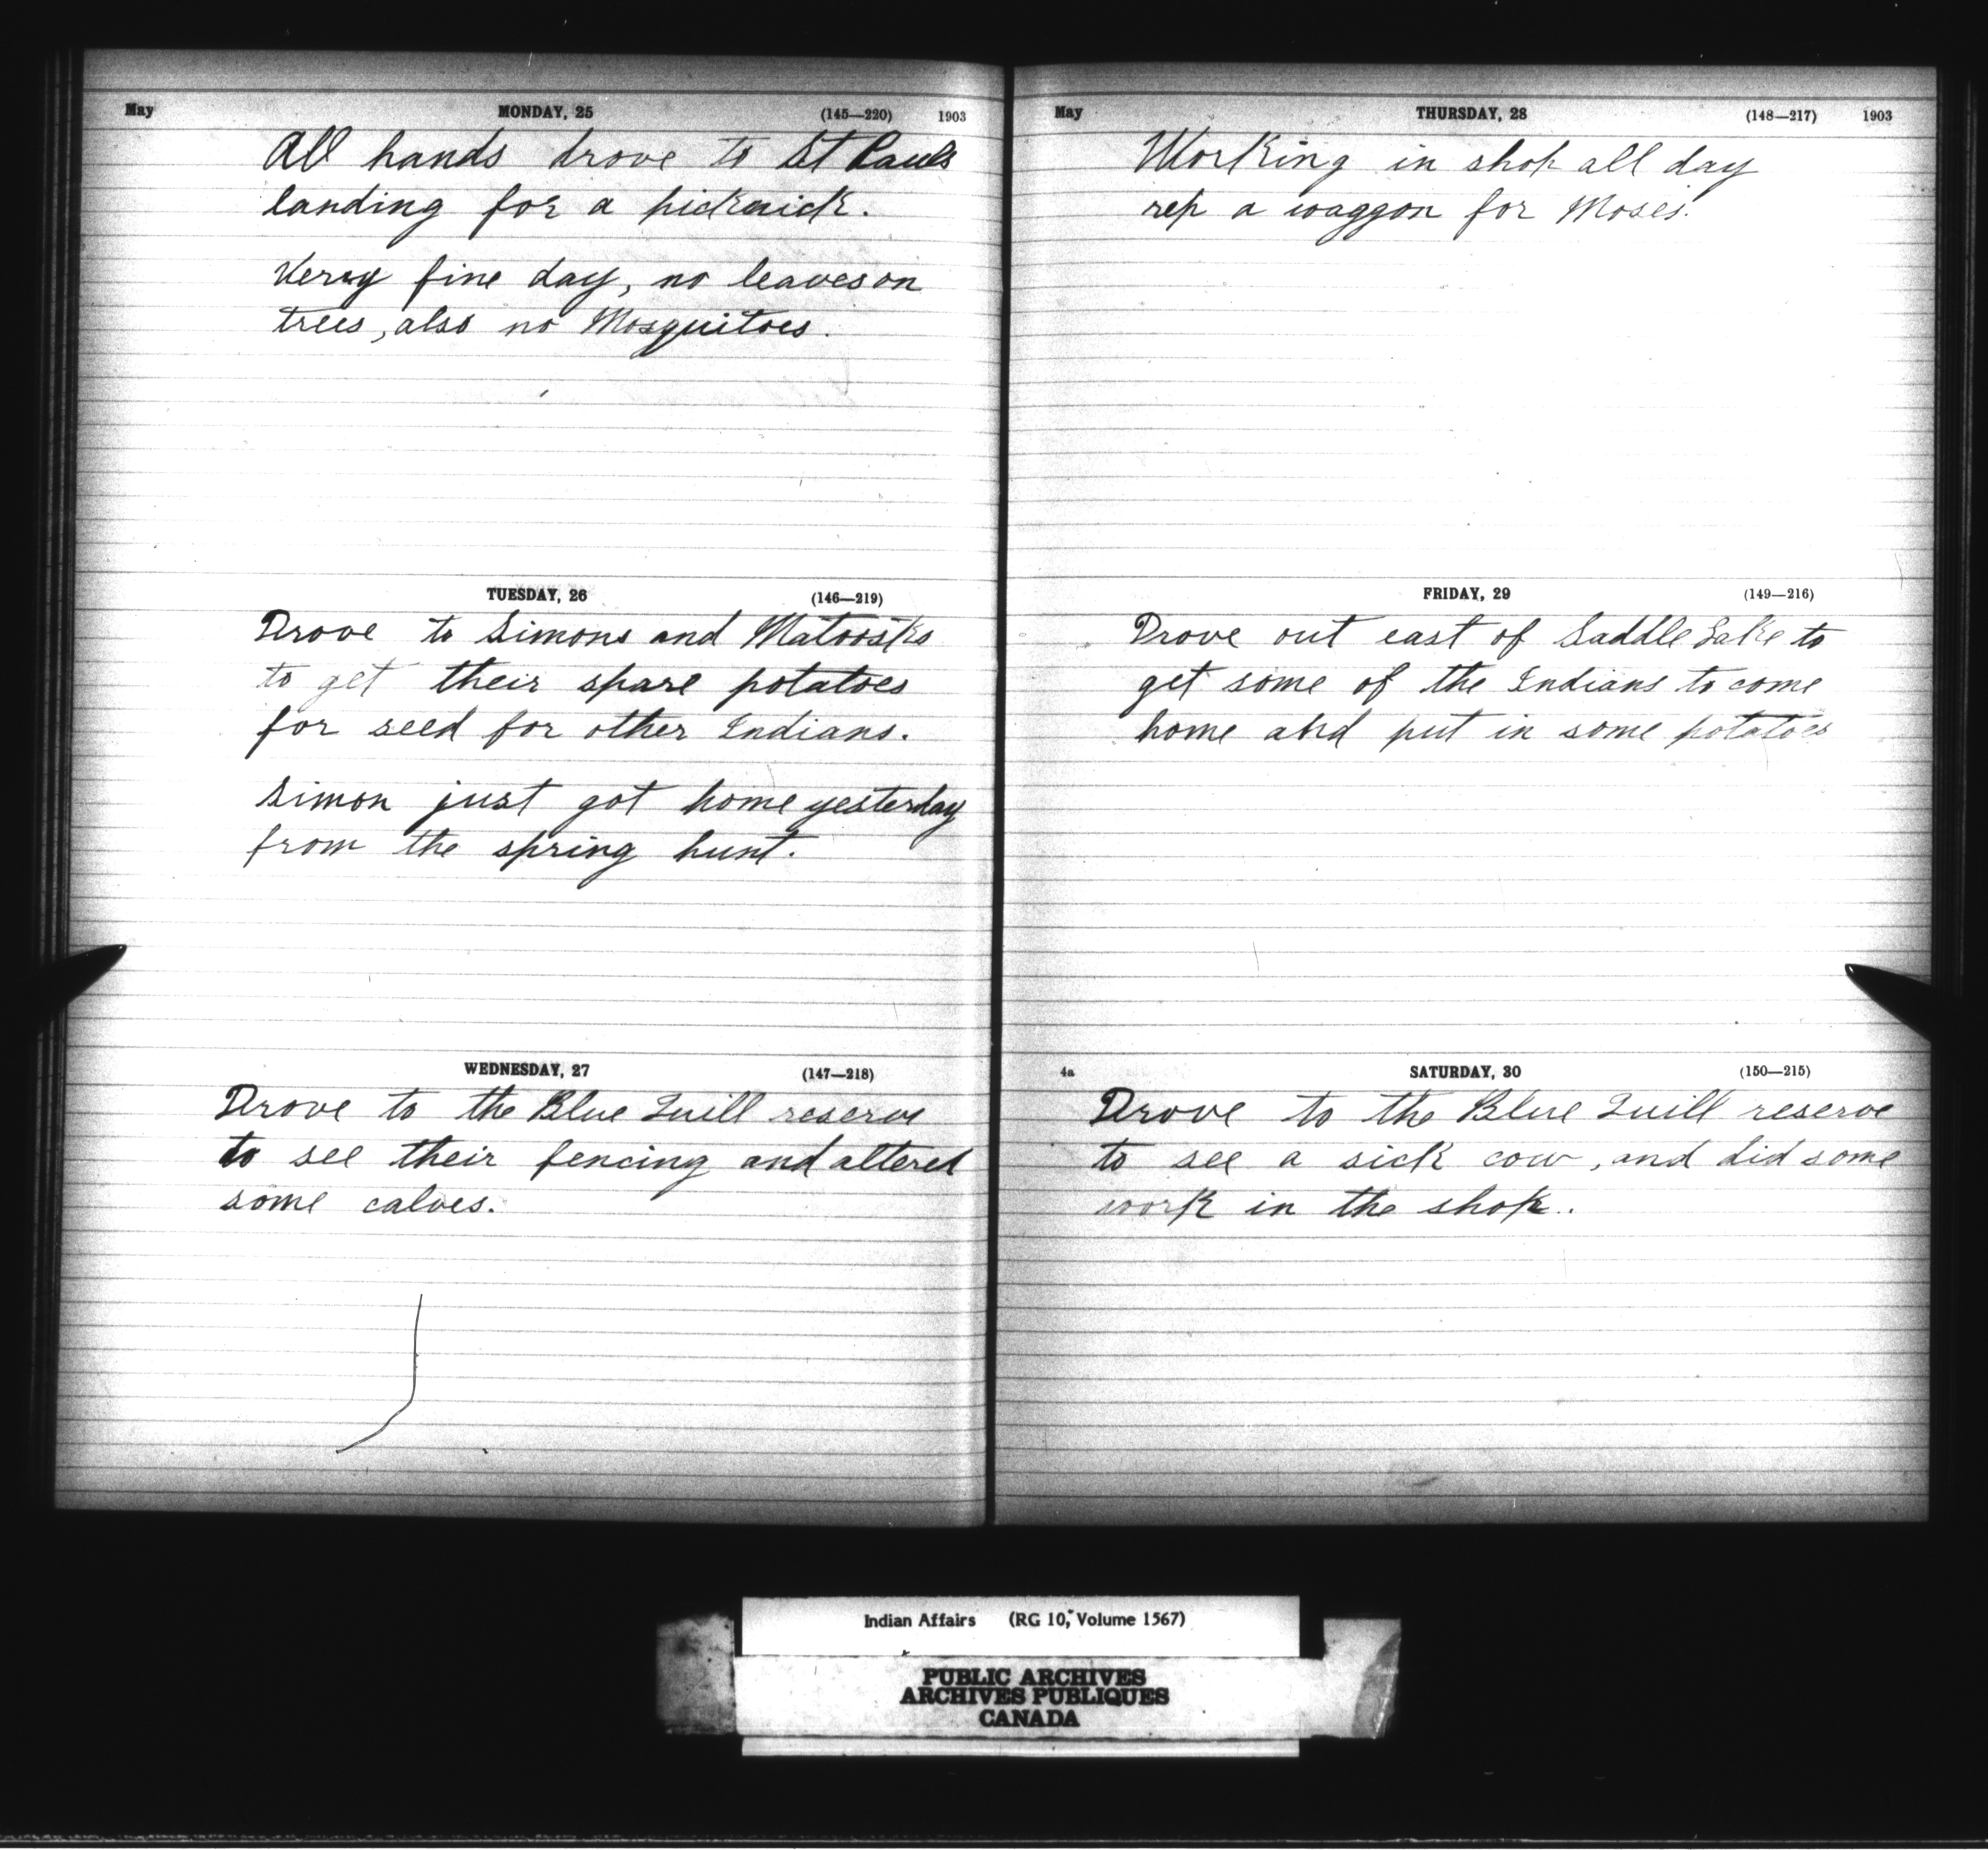 May MONDAY, 25 (145—220) 1903
All hands drove to St Pauls
landing for a picknick.
Verry fine day, no leaves on
trees, also no Mosquitoes.
TUESDAY, 26 (146—219)
Drove to Simons and Matoosks
to get their spare potatoes
for seed for other Indians.
Simon just got home yesterday
from the spring hunt.
WEDNESDAY, 27 (147—218)
Drove to the Blue Quill reserve
to see their fencing and altered
some calves.
May THURSDAY, 28 (148—217) 1903
Working in shop all day
rep a waggon for Moses.
FRIDAY, 29 (149—216)
Drove out east of Saddle Lake to
get some of the Indians to come
home and put in some potatoes
4a SATURDAY, 30 (150—215)
Drove to the Blue Quill reserve
to see a sick cow, and did some
work in the shop.
Indian Affairs (RG 10, Volume 1567)
PUBLIC ARCHIVES
ARCHIVES PUBLIQUES
CANADA